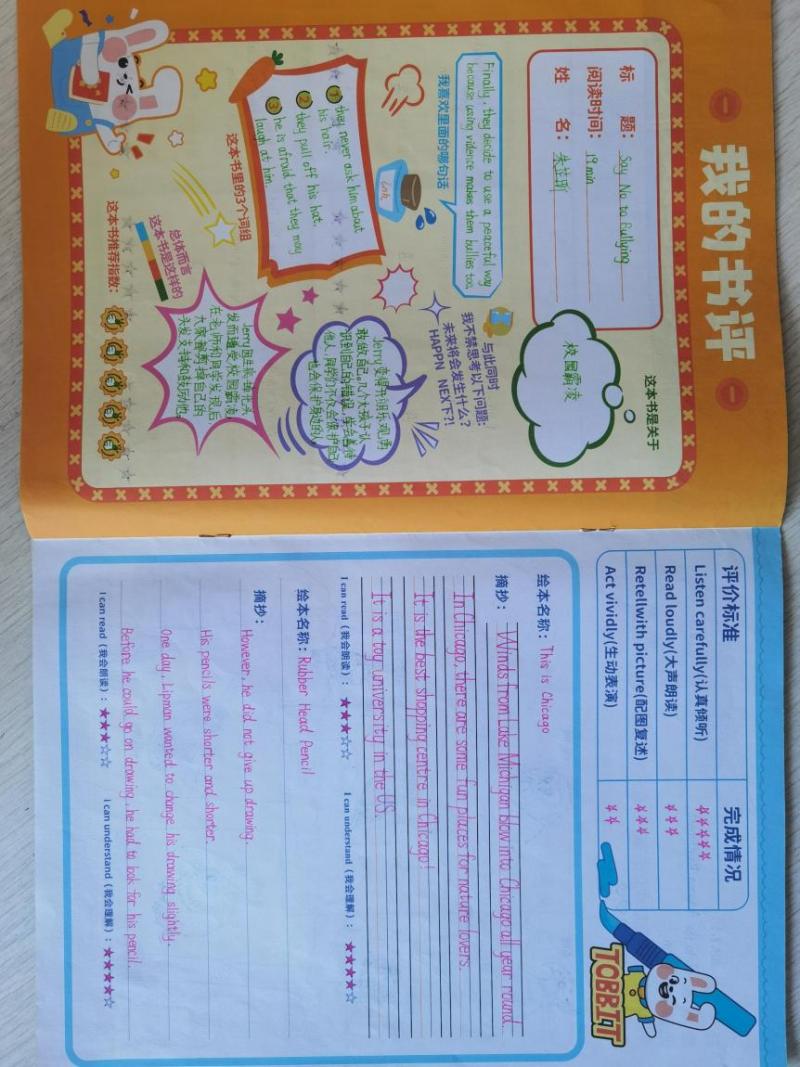 我的书评
标 题: Say No to Bullying
阅读时间: 19 min
姓 名:
这本书是关于
校园霸凌
Finally, they decide to use a peaceful way
because using vidence makes them bullies too.
我喜欢里面的哪句话
与此同时
我不禁思考以下问题:
未来将会发生什么?
HAPPN NEXT下?!
Ink
① they never ask him about
his hair.
② they pull off his hat.
③ he is afraid that they may
laugh at him.
这本书里的3个词组
总体而言
这本书是这样的
这本书推荐指数:
评价标准
完成情况
Listen carefully(认真倾听)
Read loudly(大声朗读)
Retellwith picture(配图复述)
Act vividly(生动表演)
TOBBIT
绘本名称: This is Chicago
摘抄: Winds from Lake Michigan blow into Chicago all year round.
In Chicago, there are some fun places for nature lovers.
It is the best shopping centre in Chicago!
It is a top university in the US.
I can read (我会朗读): ★★★☆☆ I can understand (我会理解): ★★★★☆
绘本名称: Rubber Head Pencil
摘抄: However, he did not give up drawing.
His pencils were shorter and shorter.
One day, Lipman wanted to change his drawing slightly.
Before he could go on drawing, he had to look for his pencil.
I can read (我会朗读): ★★★☆☆ I can understand (我会理解): ★★★★☆